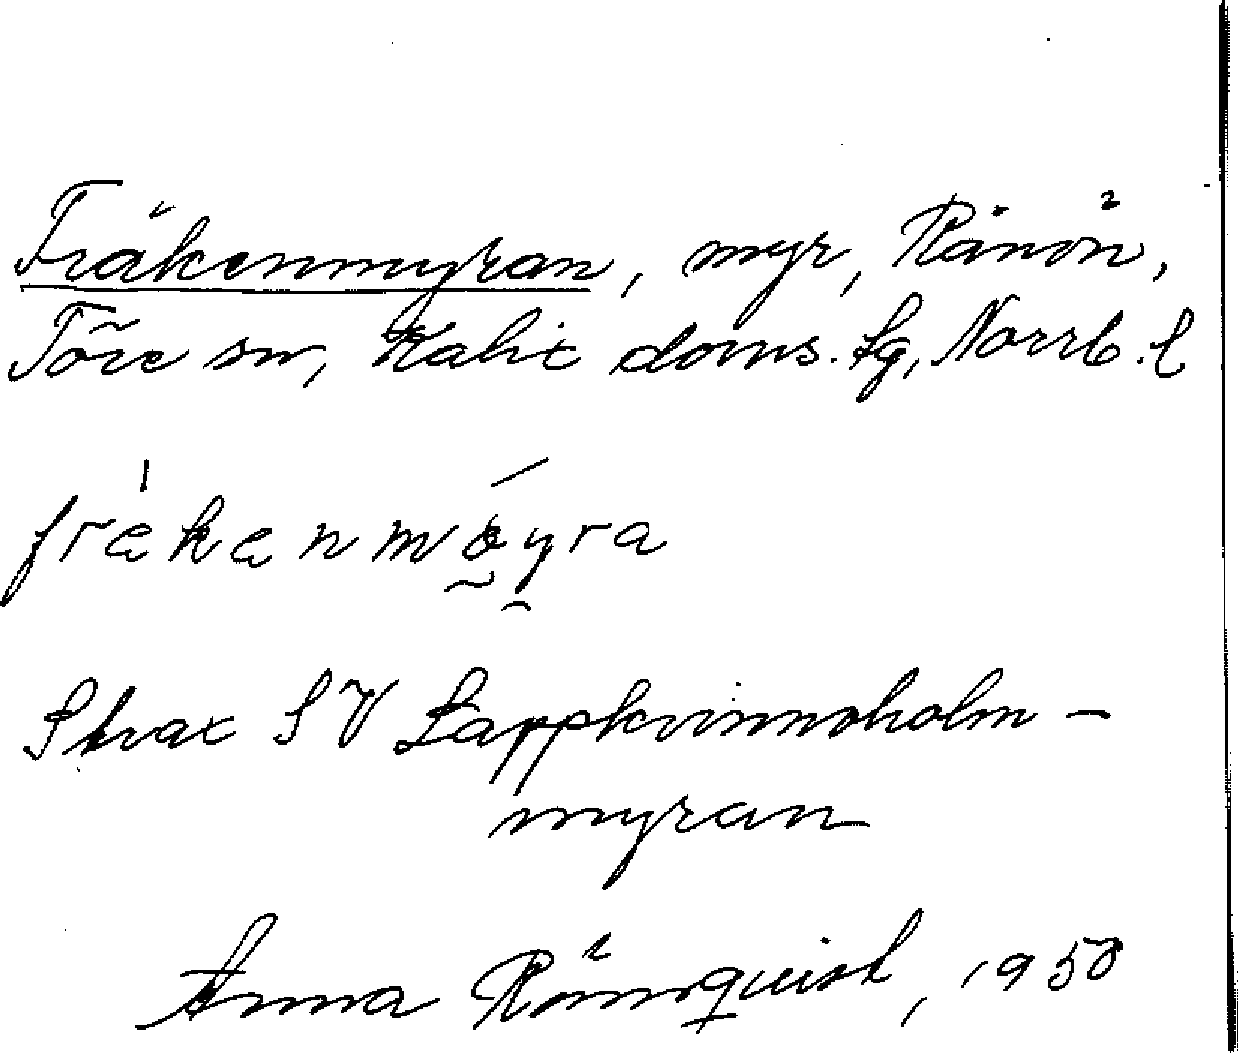 Fräkenmyran, myr, Rånön,
Töre sn, Kalix doms. lg, Norrb. l
fräkenmöyra
Strax SV Lappkvinnoholm-
myran
Anna Rönnquist, 1950